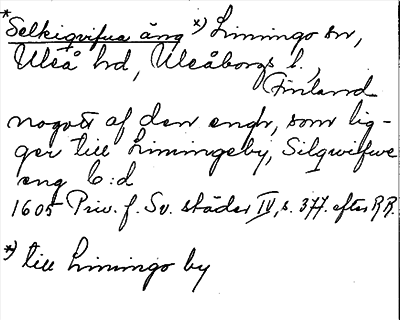 * Selkiqvifua äng *) Limingo sn,
Uleå hd, Uleåborgs l.,
Finland
nogott af den engh, som lig-
ger till Limingeby, Silqwifwe
eng b:d
1605 Priv. f. Sv. städer IV, s. 377. efter RR.
*) till Limingo by